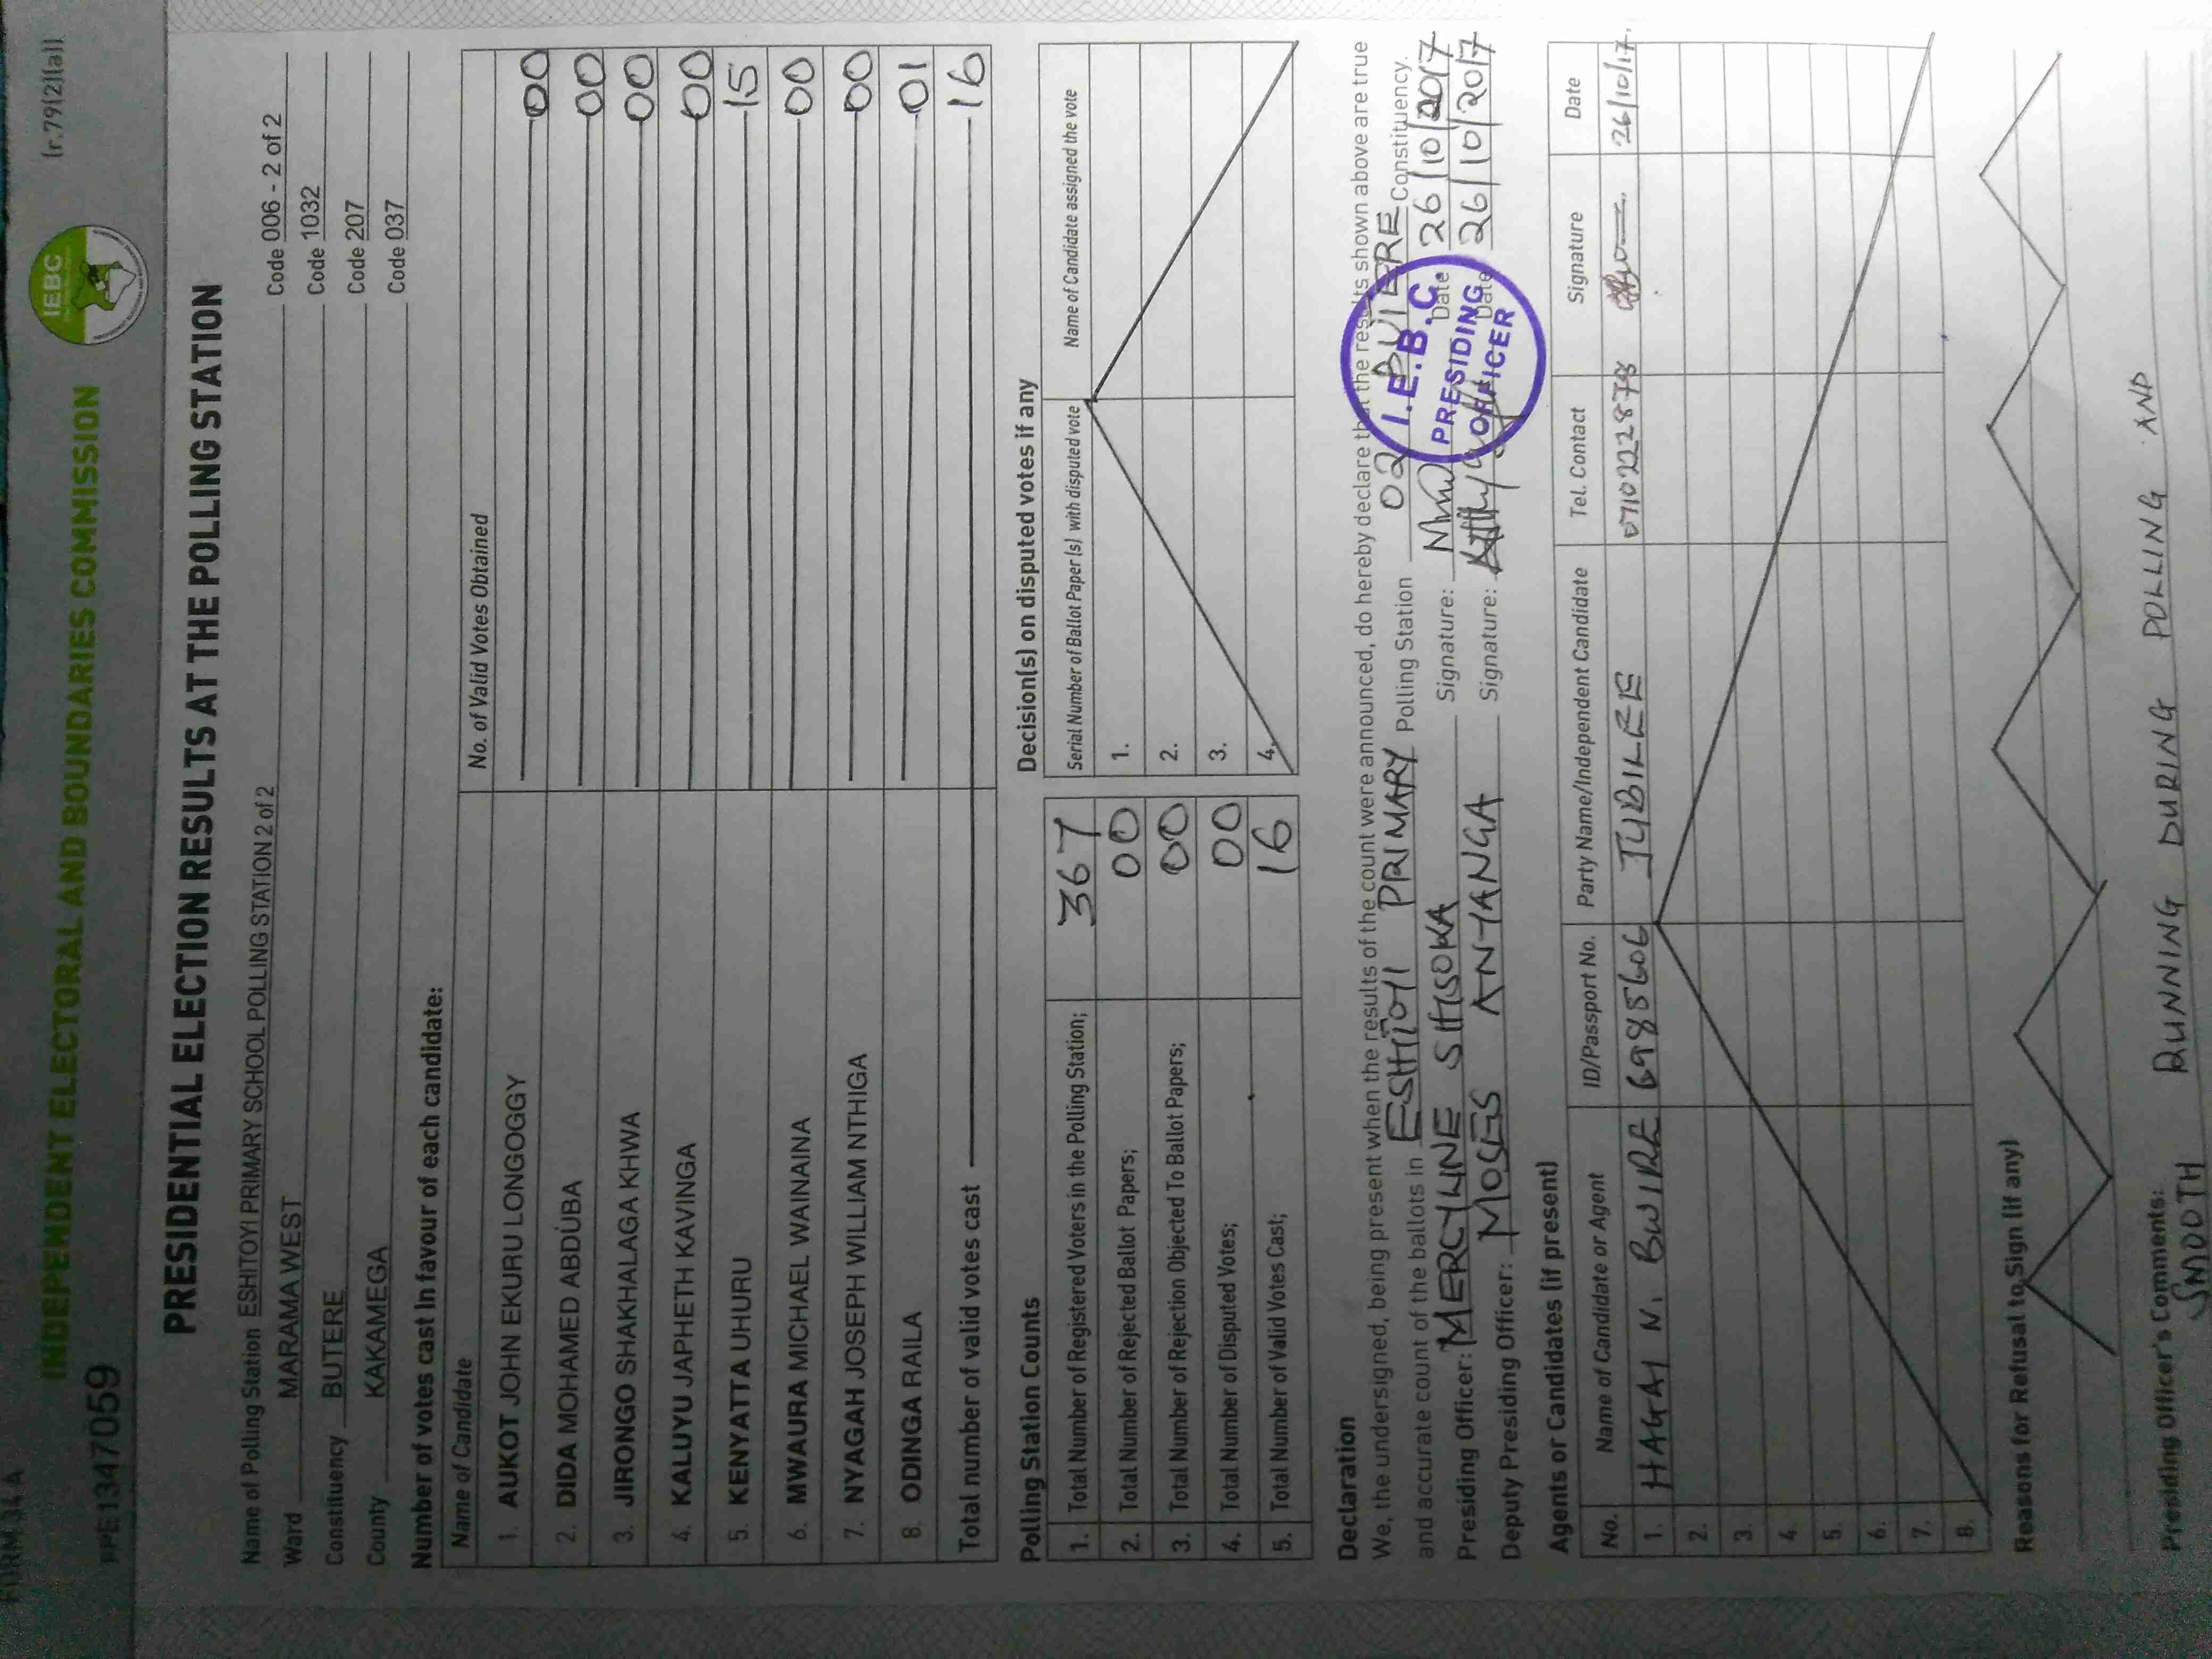 FORM 34 A
(r.79(2)(a))
INDEPENDENT ELECTORAL AND BOUNDARIES COMMISSION
IEBC
PPE1347059
PRESIDENTIAL ELECTION RESULTS AT THE POLLING STATION
Name of Polling Station ESHITOYI PRIMARY SCHOOL POLLING STATION 2 of 2 Code 006 - 2 of 2
Ward MARAMA WEST Code 1032
Constituency BUTERE Code 207
County KAKAMEGA Code 037
Number of votes cast in favour of each candidate:
Name of Candidate No. of Valid Votes Obtained
1. AUKOT JOHN EKURU LONGOGGY 00
2. DIDA MOHAMED ABDUBA 00
3. JIRONGO SHAKHALAGA KHWA 00
4. KALUYU JAPHETH KAVINGA 00
5. KENYATTA UHURU 15
6. MWAURA MICHAEL WAINAINA 00
7. NYAGAH JOSEPH WILLIAM NTHIGA 00
8. ODINGA RAILA 01
Total number of valid votes cast 16
Polling Station Counts
1. Total Number of Registered Voters in the Polling Station; 367
2. Total Number of Rejected Ballot Papers; 00
3. Total Number of Rejection Objected To Ballot Papers; 00
4. Total Number of Disputed Votes; 00
5. Total Number of Valid Votes Cast; 16
Decision(s) on disputed votes if any
Serial Number of Ballot Paper (s) with disputed vote Name of Candidate assigned the vote
1.
2.
3.
4.
Declaration
We, the undersigned, being present when the results of the count were announced, do hereby declare that the results shown above are true
and accurate count of the ballots in ESHITOYI PRIMARY Polling Station 02 BUTERE Constituency.
Presiding Officer: MERCYLINE SHISOKA Signature: Date 26/10/2017
Deputy Presiding Officer: MOSES ANYANGA Signature: Date 26/10/2017
I.E.B.C
PRESIDING
OFFICER
Agents or Candidates (if present)
No. Name of Candidate or Agent ID/Passport No. Party Name/Independent Candidate Tel. Contact Signature Date
1. HAGAI N. BWIRE 6985606 JUBILEE 071022878 26/10/17
2.
3.
4.
5.
6.
7.
8.
Reasons for Refusal to Sign (if any)
Presiding Officer's Comments:
SMOOTH RUNNING DURING POLLING AND